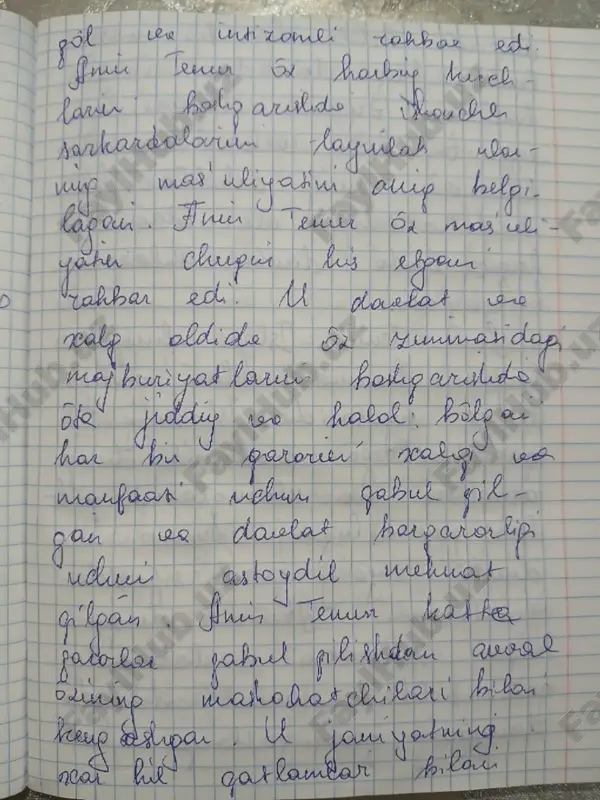 qōl va intizomli rahbar edi.
Amir Temur ōz harbiy kuch-
larini boshqarishda ishonchli
sarkardalarini tayinlab ular-
ning mas'uliyatini aniq belgi-
lagan. Amir Temur ōz mas'uli-
yatini chuqur his etgan
rahbar edi. U davlat va
xalq oldida ōz zimmasidagi
majburiyatlarini boshqarishda
ōta jiddiy va halol bōlgan
har bir qarorini xalqi va
manfaati uchun qabul qil-
gan va davlat barqarorligi
uchun astoydil mehnat
qilgan. Amir Temur katta
qarorlar qabul qilishdan avval
ōzining maslahatchilari bilan
kengashgan. U jamiyatning
har hil qatlamlar bilan
FayllHub.uz